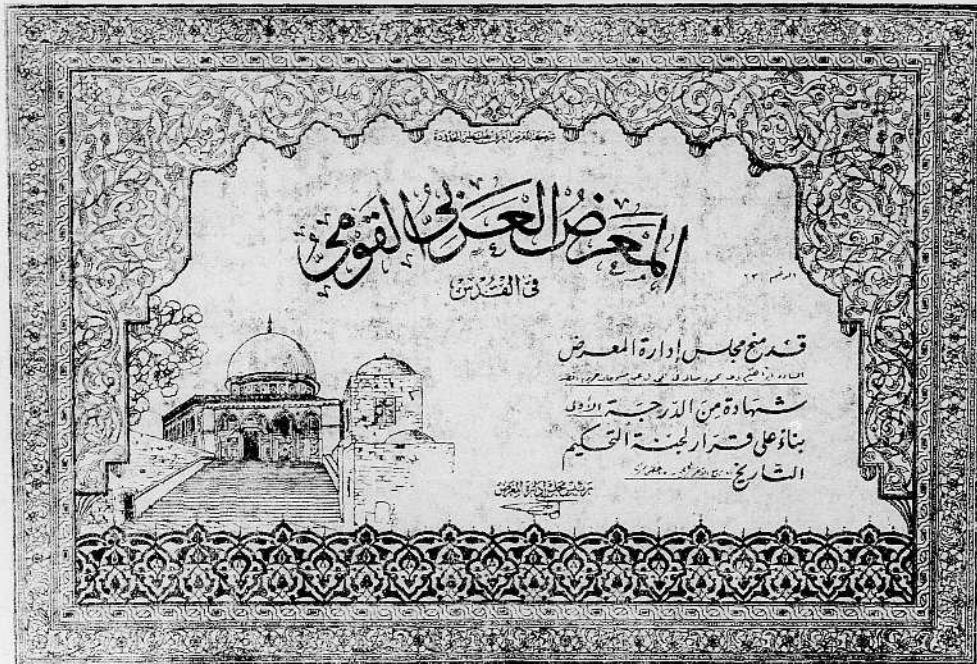 المَعرَضُ العَرَبيُّ القَومِيُّ
في القُدسِ
الرقم ٢٣
قد منح مجلس إدارة المعرض
شهادة من الدرجة الأولى
بناءً على قرار لجنة التحكيم
التاريخ
رئيس مجلس إدارة المعرض